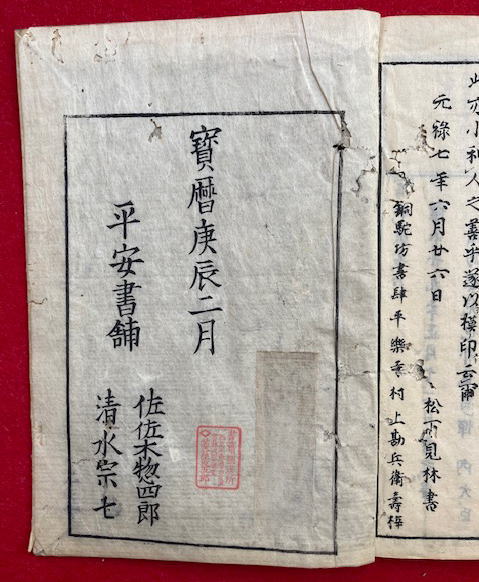 此亦小利人之善乎遂以模印云爾
元祿七年六月廿六日
松下見林書
銅駝坊書肆平樂寺村上勘兵衛壽梓
寶曆庚辰二月
平安書舖
佐佐木惣四郎
清水宗七